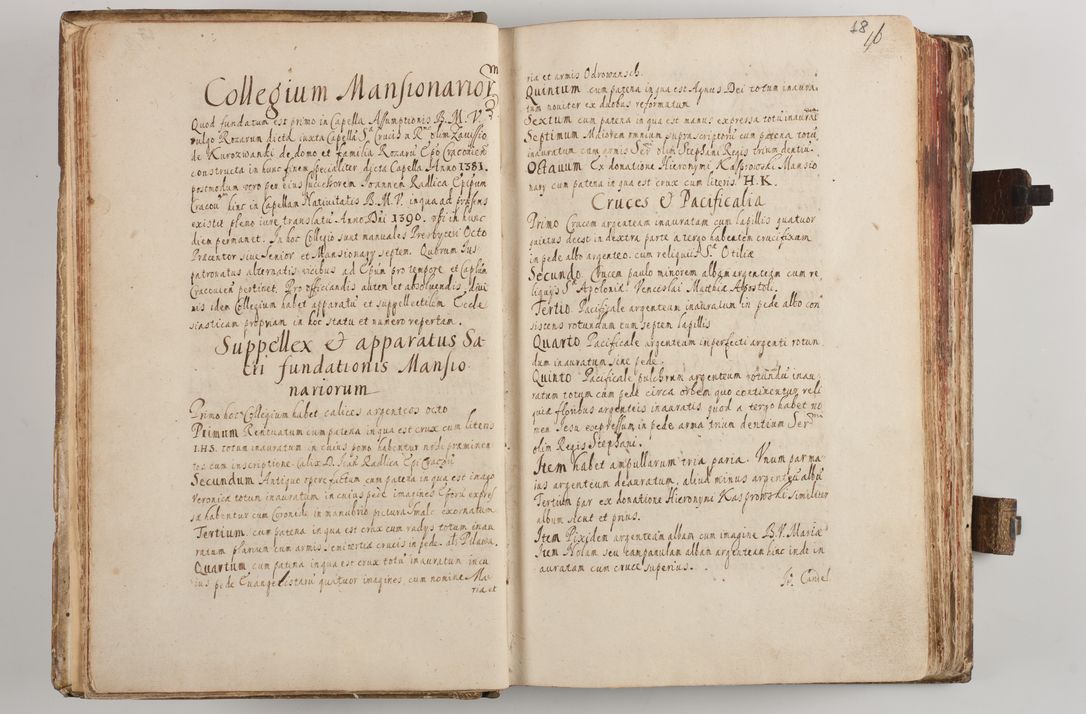 Collegium Mansionarior̃
Quod fundatum est primo in Capella Assumptionis B. M. V.
vulgo Rozarum dicta iuxta Capellã S. Crucis a R. olim Zavisio
de Kurozwanki de domo et familia Rozarũ Epõ Cracovien
constructa in hunc finem specialiter dicta Capella Anno 1381.
postmodum vero per eius successorem Joannem Radlica Epĩpum
Cracou hinc in Capellam Natiuitatis B. M. V. in qua ad presens
existit pleno iure translatũ Anno Dni 1390. usq in hunc
diem permanet. In hoc Collegio sunt manuales Presbyteri Octo
Præcentor siue Senior et Mansionarÿ septem. Quorum Jus
patronatus alternatis vicibus ad Epum pro tempore et Caplũ
Cracouien pertinet. Pro officiandis autem et absoluendis diui
nis idem Collegium habet apparatũ et suppellectilem Eccle
siasticam propriam in hoc statu et numero repertam.
Suppellex & apparatus Sa
cri fundationis Mansio
nariorum
Primo hoc Collegium habet calices argenteos octo
Primum Renouatum cum patena in qua est crux cum literis
I.H.S. totum inauratum in cuius pomo habentur nodi præminen
tes cum inscriptione calix D. Joan Radlica Epi Cracou
Secundum Antiquo opere factum cum patena in qua est imago
Veronica totum inauratum in cuius pede imagines
sa habentur cum Coronide in manubrio pictura smalc exornatum
Tertium cum patena in qua est crux cum radÿs totum inau
ratum planum cum armis
Quartum cum patena in qua est crux totũ inauratum in cu
ius pede Euangelistarũ quatuor imagines cum nomine Ma
ria et
18
16
ria et armis Odrowansch.
Quintum cum patena in qua est Agnus Dei totum inaura
tum nouiter ex duobus reformatum
Sextum cum patena in qua est manus expressa totũ inaurat
Septimum Maiorem omnium suprascriptorũ cum patena totũ
inauratum cum armis Ser olim Stephani Regis trium dentiũ
Octauum Ex donatione Hieronymi Kasprowski Mansio
narÿ cum patena in qua est crux cum literis H. K.
Cruces & Pacificalia
Primo Crucem argenteam inauratam cum lapillis quatuor
quintus deest in dextra parte a tergo habentem crucifixum
in pede albo argenteo cum reliquÿs S. Otiliæ
Secundo Crucem paulo minorem albam argenteam cum re
liquÿs S. Apolonia Venceslai Matthia Apostoli.
Tertio Pacificale argenteum inauratum in pede albo con
sistens rotundum cum septem lapillis
Quarto Pacificale argenteum inperfecti argenti rotun
dum inauratum sine pede.
Quinto Pacificale pulchrum argenteum rotundũ inau
ratum totum cum pede circa orbem quo continentur reli
quia floribus argenteis inauratis quod a tergo habet no
men Jesu expressum in pede arma trium dentium Ser
olim Regis Stephani.
Item habet ampullarum tria paria. Vnum par ma
ius argenteum deauratum, aliud minus argenteũ albũ
Tertium par ex donatione Hieronymi Kasprowski similiter
album sicut et prius.
Item Pixidem argenteam albam cum imagine B. V. Maria
Item Nolam seu campanulam albam argenteam hinc inde in
auratam cum cruce superius.
Candel